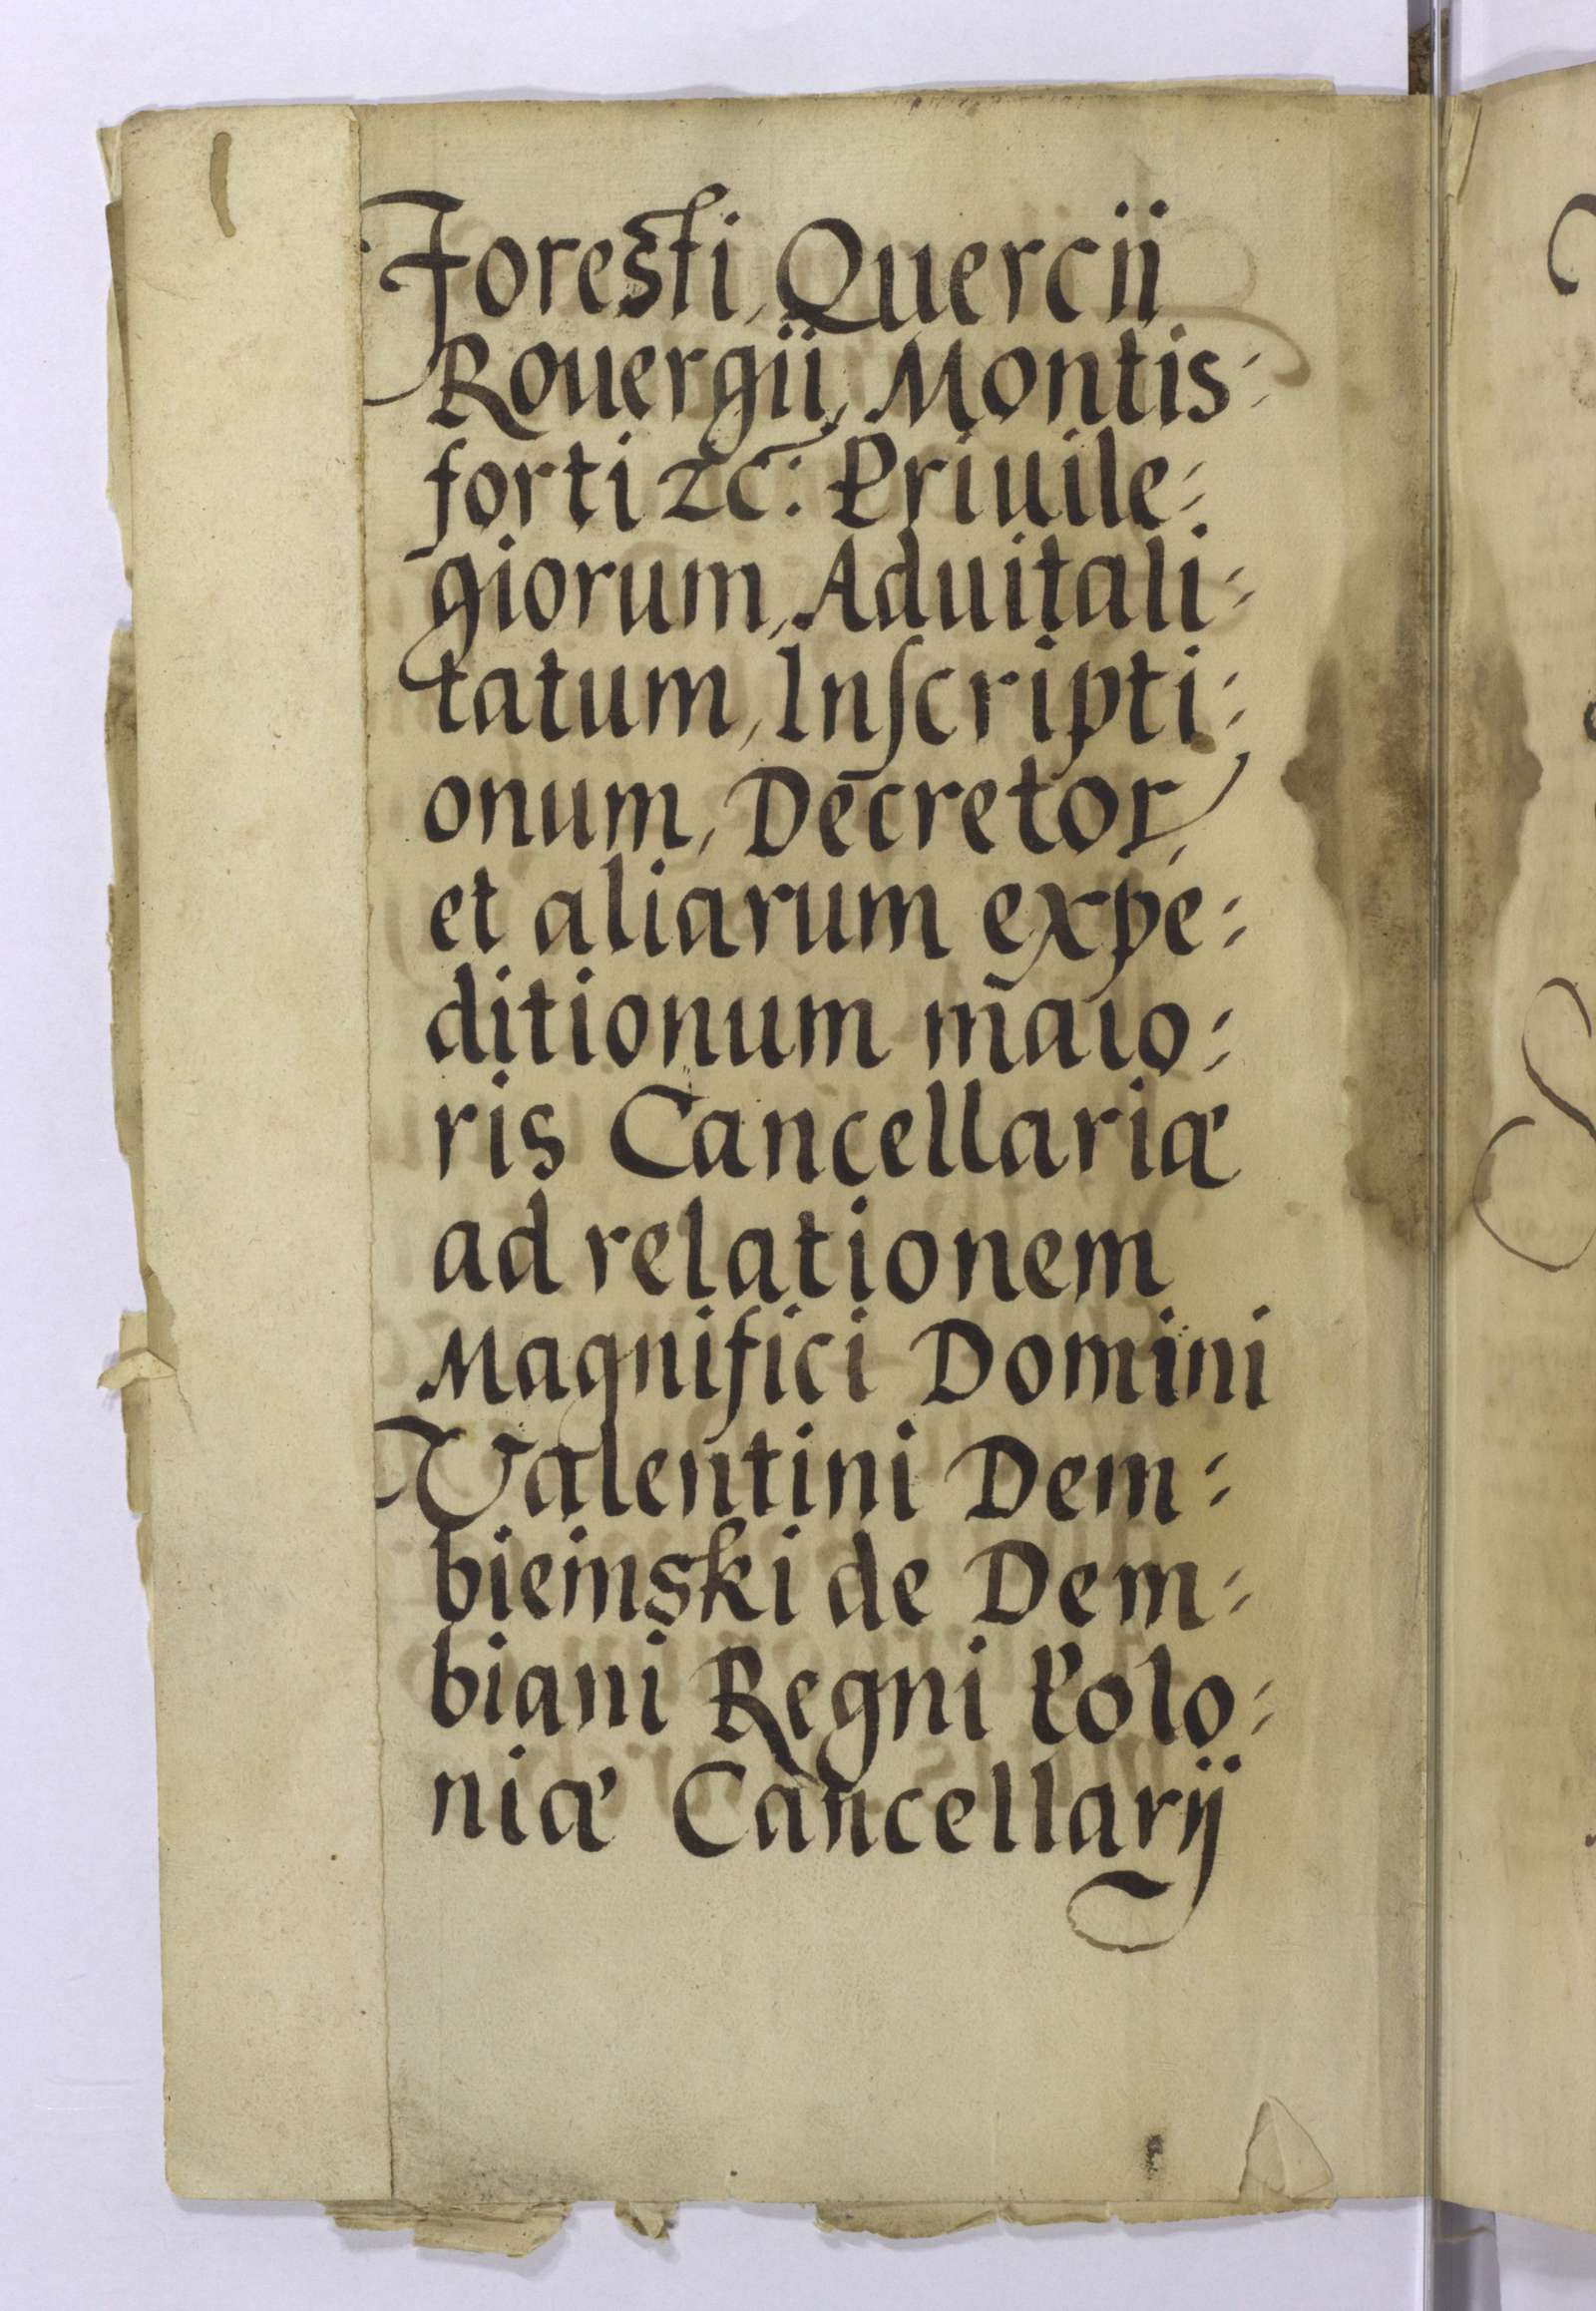 Foresti, Quercii
Rouergii, Montis=
forti zc: Priuile=
giorum, Aduitali=
tatum, Inſcripti=
onum, Decretor,
et aliarum expe=
ditionum maio=
ris Cancellariæ
ad relationem
Magnifici Domini
Valentini Dem=
bieinski de Dem=
biani Regni Polo=
niæ Cancellarij